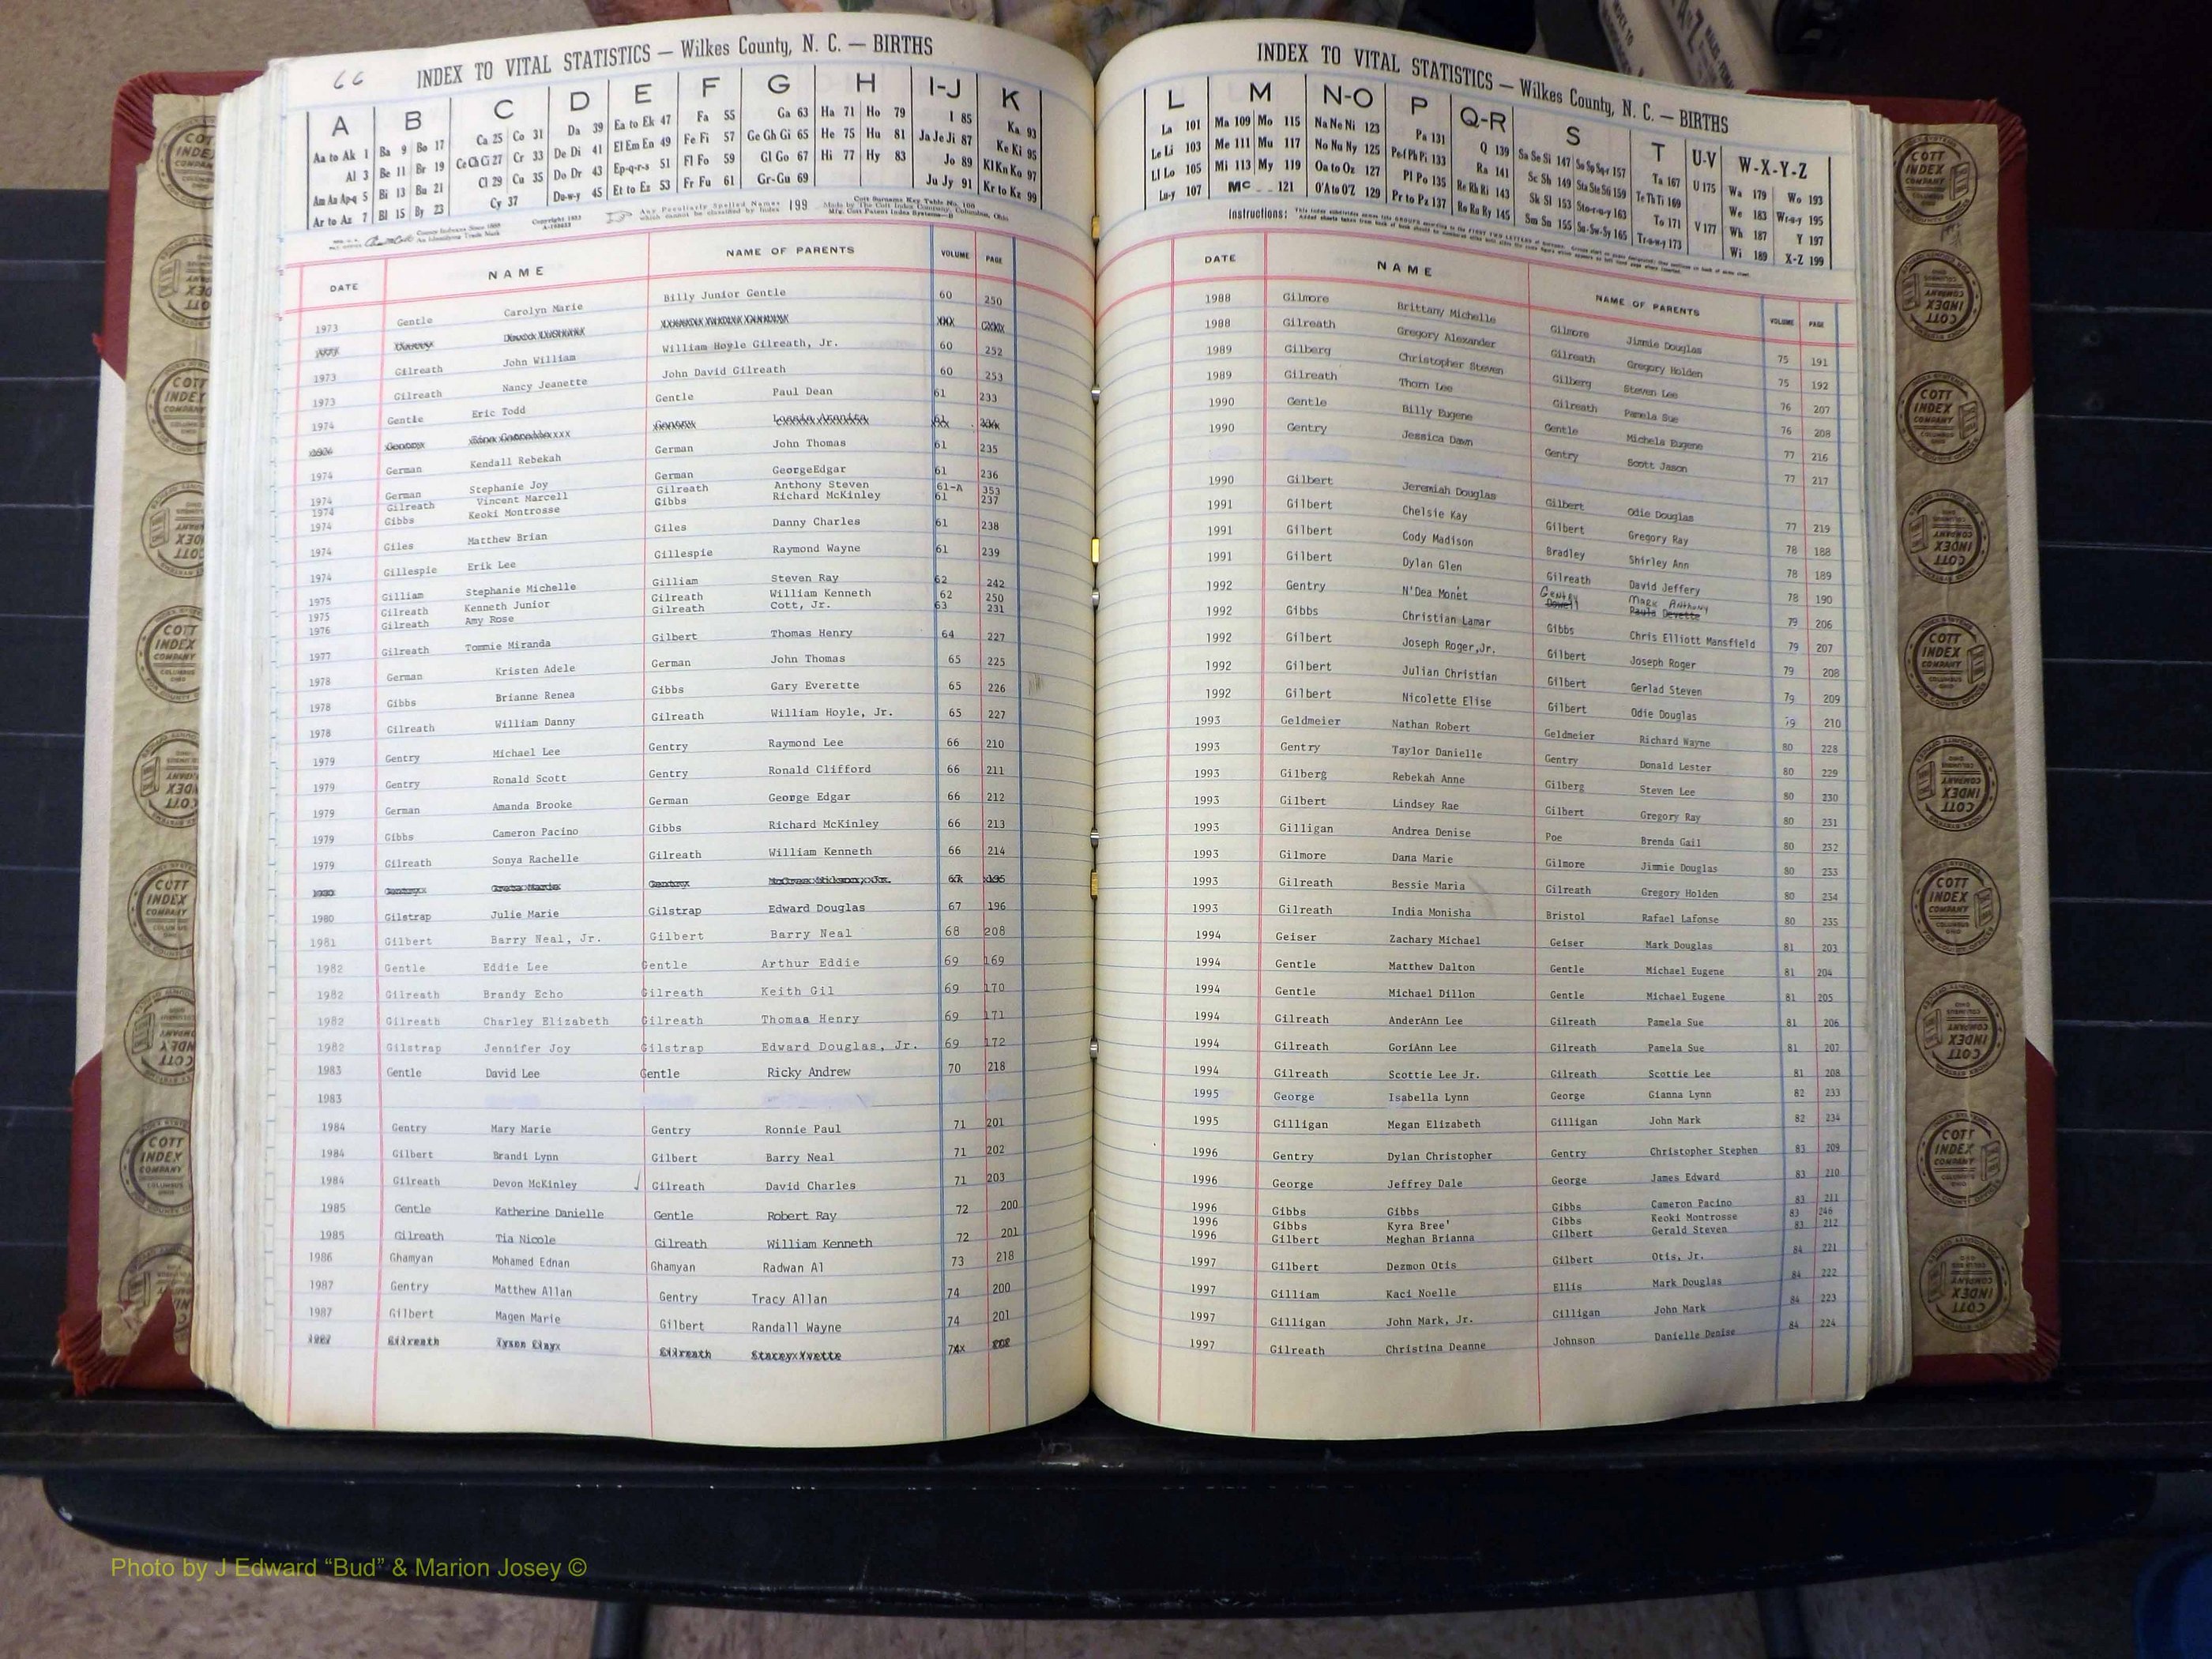 66
INDEX TO VITAL STATISTICS — Wilkes County, N. C. — BIRTHS
A B C D E F G H I-J K
Aa to Ak 1 Ba 9 Bo 17 Ca 25 Co 31 Da 39 Ea to Ek 47 Fa 55 Ga 63 Ha 71 Ho 79 I 85 Ka 93
Al 3 Be 11 Br 19 Ce Ch Ci 27 Cr 33 De Di 41 El Em En 49 Fe Fi 57 Ge Gh Gi 65 He 75 Hu 81 Ja Je Ji 87 Ke Ki 95
Am An Ap-q 5 Bi 13 Bu 21 Cl 29 Cu 35 Do Dr 43 Ep-q-r-s 51 Fl Fo 59 Gl Go 67 Hi 77 Hy 83 Jo 89 Kl Kn Ko 97
Ar to Az 7 Bl 15 By 23 Cy 37 Du-w-y 45 Et to Ez 53 Fr Fu 61 Gr-Gu 69 Ju Jy 91 Kr to Kz 99
County Indexes Since 1888
An Identifying Trade Mark
Any Peculiarly Spelled Names which cannot be classified by Index 199
Made by The Cott Index Company, Columbus, Ohio
DATE NAME NAME OF PARENTS VOLUME PAGE
1973 Gentle Carolyn Marie Billy Junior Gentle 60 250
1973 Gilreath John William William Hoyle Gilreath, Jr. 60 252
1973 Gilreath Nancy Jeanette John David Gilreath 60 253
1974 Gentle Eric Todd Gentle Paul Dean 61 233
1974 German Kendall Rebekah German John Thomas 61 235
1974 German Stephanie Joy German GeorgeEdgar 61 236
1974 Gilreath Vincent Marcell Gilreath Anthony Steven 61-A 353
1974 Gibbs Keoki Montrosse Gibbs Richard McKinley 61 237
1974 Giles Matthew Brian Giles Danny Charles 61 238
1974 Gillespie Erik Lee Gillespie Raymond Wayne 61 239
1975 Gilliam Stephanie Michelle Gilliam Steven Ray 62 242
1975 Gilreath Kenneth Junior Gilreath William Kenneth 62 250
1976 Gilreath Amy Rose Gilreath Cott, Jr. 63 231
1977 Gilreath Tommie Miranda Gilbert Thomas Henry 64 227
1978 German Kristen Adele German John Thomas 65 225
1978 Gibbs Brianne Renea Gibbs Gary Everette 65 226
1978 Gilreath William Danny Gilreath William Hoyle, Jr. 65 227
1979 Gentry Michael Lee Gentry Raymond Lee 66 210
1979 Gentry Ronald Scott Gentry Ronald Clifford 66 211
1979 German Amanda Brooke German George Edgar 66 212
1979 Gibbs Cameron Pacino Gibbs Richard McKinley 66 213
1979 Gilreath Sonya Rachelle Gilreath William Kenneth 66 214
1980 Gilstrap Julie Marie Gilstrap Edward Douglas 67 196
1981 Gilbert Barry Neal, Jr. Gilbert Barry Neal 68 208
1982 Gentle Eddie Lee Gentle Arthur Eddie 69 169
1982 Gilreath Brandy Echo Gilreath Keith Gil 69 170
1982 Gilreath Charley Elizabeth Gilreath Thomas Henry 69 171
1982 Gilstrap Jennifer Joy Gilstrap Edward Douglas, Jr. 69 172
1983 Gentle David Lee Gentle Ricky Andrew 70 218
1983
1984 Gentry Mary Marie Gentry Ronnie Paul 71 201
1984 Gilbert Brandi Lynn Gilbert Barry Neal 71 202
1984 Gilreath Devon McKinley Gilreath David Charles 71 203
1985 Gentle Katherine Danielle Gentle Robert Ray 72 200
1985 Gilreath Tia Nicole Gilreath William Kenneth 72 201
1986 Ghamyan Mohamed Ednan Ghamyan Radwan Al 73 218
1987 Gentry Matthew Allan Gentry Tracy Allan 74 200
1987 Gilbert Magen Marie Gilbert Randall Wayne 74 201
INDEX TO VITAL STATISTICS — Wilkes County, N. C. — BIRTHS
L M N-O P Q-R S T U-V W-X-Y-Z
La 101 Ma 109 Mo 115 Na Ne Ni 123 Pa 131 Q 139 Sa Se Si 147 So Sp Sq-r 157 Ta 167 U 175 Wa 179 Wo 193
Le Li 103 Me 111 Mu 117 No Nu Ny 125 Pe-f Ph Pi 133 Ra 141 Sc Sh 149 Sta Ste Sti 159 Te Th Ti 169 We 183 Wr-u-y 195
Ll Lo 105 Mi 113 My 119 Oa to Oz 127 Pl Po 135 Re Rh Ri 143 Sk Sl 153 Sto-r-u-y 163 To 171 V 177 Wh 187 Y 197
Lu-y 107 Mc 121 O'A to O'Z 129 Pr to Pz 137 Ro Ru Ry 145 Sm Sn 155 Su-Sw-Sy 165 Tr-u-w-y 173 Wi 189 X-Z 199
Instructions:
DATE NAME NAME OF PARENTS VOLUME PAGE
1988 Gilmore Brittany Michelle Gilmore Jimmie Douglas 75 191
1988 Gilreath Gregory Alexander Gilreath Gregory Holden 75 192
1989 Gilberg Christopher Steven Gilberg Steven Lee 76 207
1989 Gilreath Thorn Lee Gilreath Pamela Sue 76 208
1990 Gentle Billy Eugene Gentle Michela Eugene 77 216
1990 Gentry Jessica Dawn Gentry Scott Jason 77 217
1990 Gilbert Jeremiah Douglas Gilbert Odie Douglas 77 219
1991 Gilbert Chelsie Kay Gilbert Gregory Ray 78 188
1991 Gilbert Cody Madison Bradley Shirley Ann 78 189
1991 Gilbert Dylan Glen Gilreath David Jeffery 78 190
1992 Gentry N'Dea Monet Gentry Mark Anthony 79 206
1992 Gibbs Christian Lamar Gibbs Chris Elliott Mansfield 79 207
1992 Gilbert Joseph Roger,Jr. Gilbert Joseph Roger 79 208
1992 Gilbert Julian Christian Gilbert Gerlad Steven 79 209
1992 Gilbert Nicolette Elise Gilbert Odie Douglas 79 210
1993 Geldmeier Nathan Robert Geldmeier Richard Wayne 80 228
1993 Gentry Taylor Danielle Gentry Donald Lester 80 229
1993 Gilberg Rebekah Anne Gilberg Steven Lee 80 230
1993 Gilbert Lindsey Rae Gilbert Gregory Ray 80 231
1993 Gilligan Andrea Denise Poe Brenda Gail 80 232
1993 Gilmore Dana Marie Gilmore Jimmie Douglas 80 233
1993 Gilreath Bessie Maria Gilreath Gregory Holden 80 234
1993 Gilreath India Monisha Bristol Rafael Lafonse 80 235
1994 Geiser Zachary Michael Geiser Mark Douglas 81 203
1994 Gentle Matthew Dalton Gentle Michael Eugene 81 204
1994 Gentle Michael Dillon Gentle Michael Eugene 81 205
1994 Gilreath AnderAnn Lee Gilreath Pamela Sue 81 206
1994 Gilreath GoriAnn Lee Gilreath Pamela Sue 81 207
1994 Gilreath Scottie Lee Jr. Gilreath Scottie Lee 81 208
1995 George Isabella Lynn George Gianna Lynn 82 233
1995 Gilligan Megan Elizabeth Gilligan John Mark 82 234
1996 Gentry Dylan Christopher Gentry Christopher Stephen 83 209
1996 George Jeffrey Dale George James Edward 83 210
1996 Gibbs Gibbs Gibbs Cameron Pacino 83 211
1996 Gibbs Kyra Bree' Gibbs Keoki Montrosse 83 246
1996 Gilbert Meghan Brianna Gilbert Gerald Steven 83 212
1997 Gilbert Dezmon Otis Gilbert Otis, Jr. 84 221
1997 Gilliam Kaci Noelle Ellis Mark Douglas 84 222
1997 Gilligan John Mark, Jr. Gilligan John Mark 84 223
1997 Gilreath Christina Deanne Johnson Danielle Denise 84 224
COTT INDEX COMPANY COLUMBUS OHIO
Photo by J Edward “Bud” & Marion Josey ©